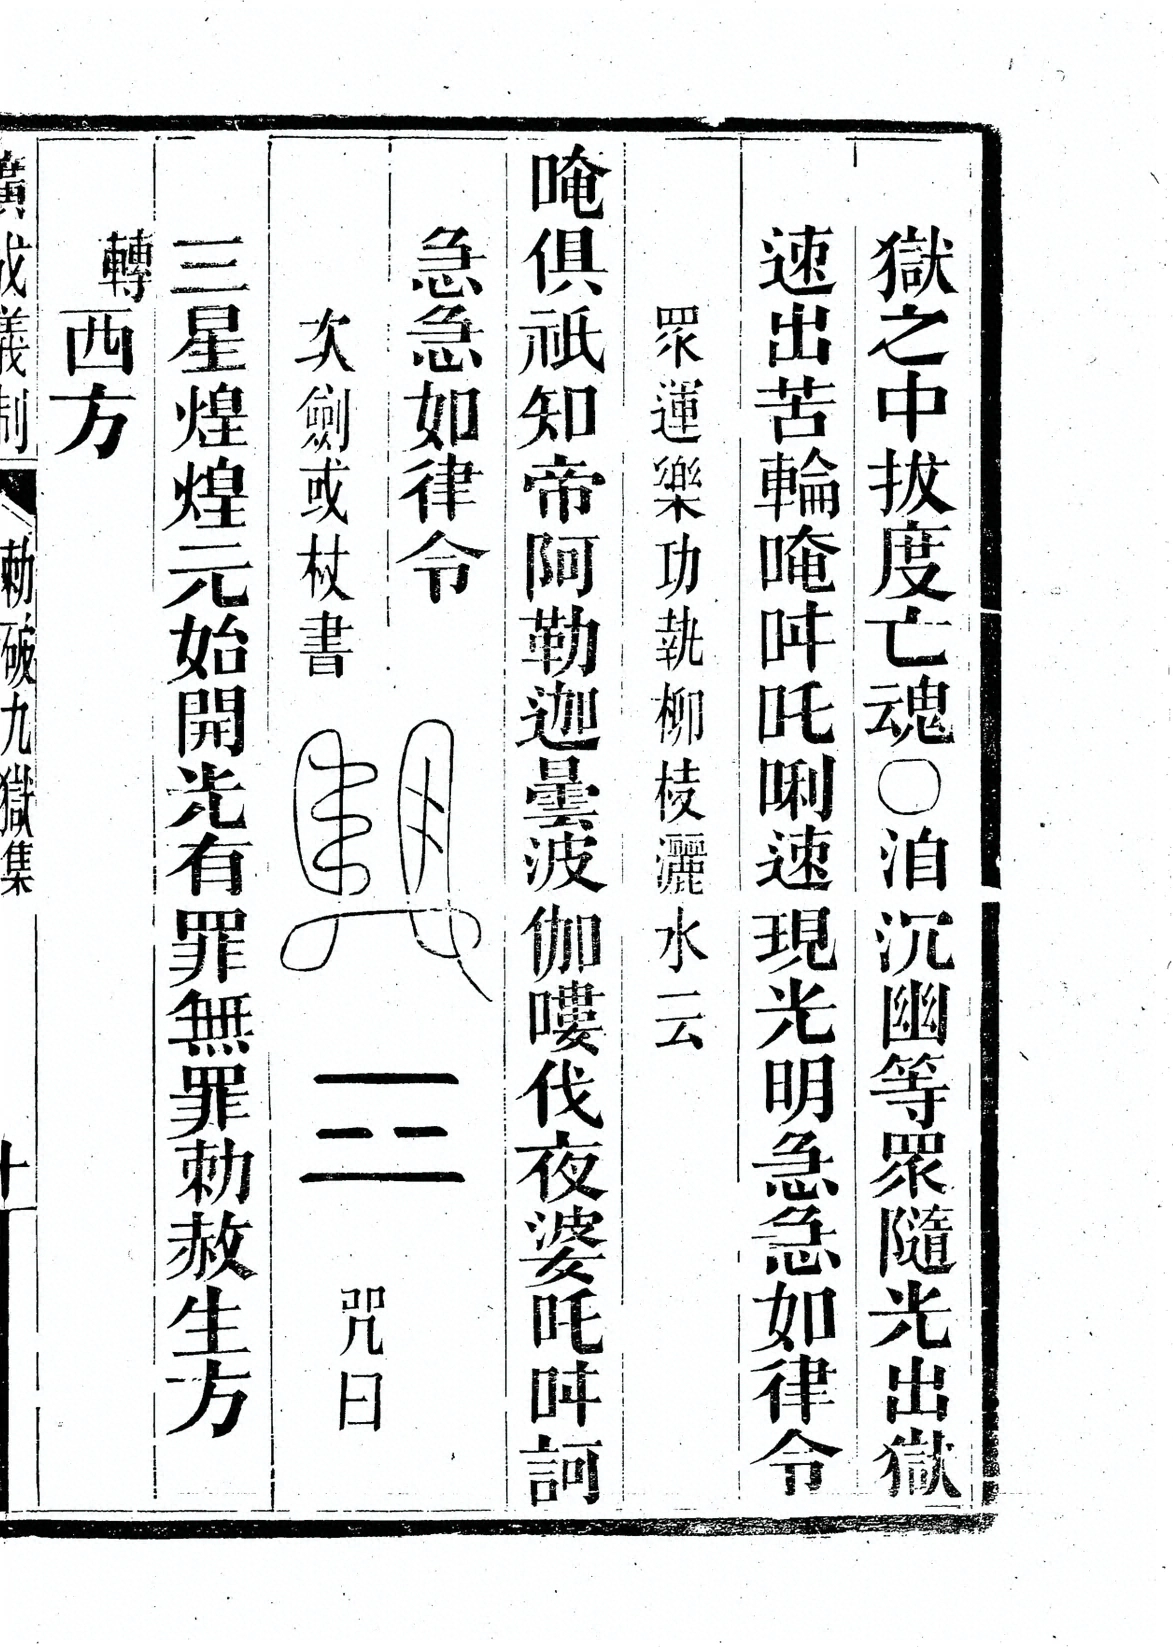 獄之中拔度亡魂〇洎沉幽等眾隨光出獄
速出苦輪唵吽吒唎速現光明急急如律令
眾運樂功執柳棱灑水云
唵俱祇知帝阿勒迦曇波伽嘍伐夜婆吒吽訶
急急如律令
次劍或杖書
咒曰
三星煌煌元始開光有罪無罪勅赦生方
轉西方
廣成儀制
勅破九獄集
十